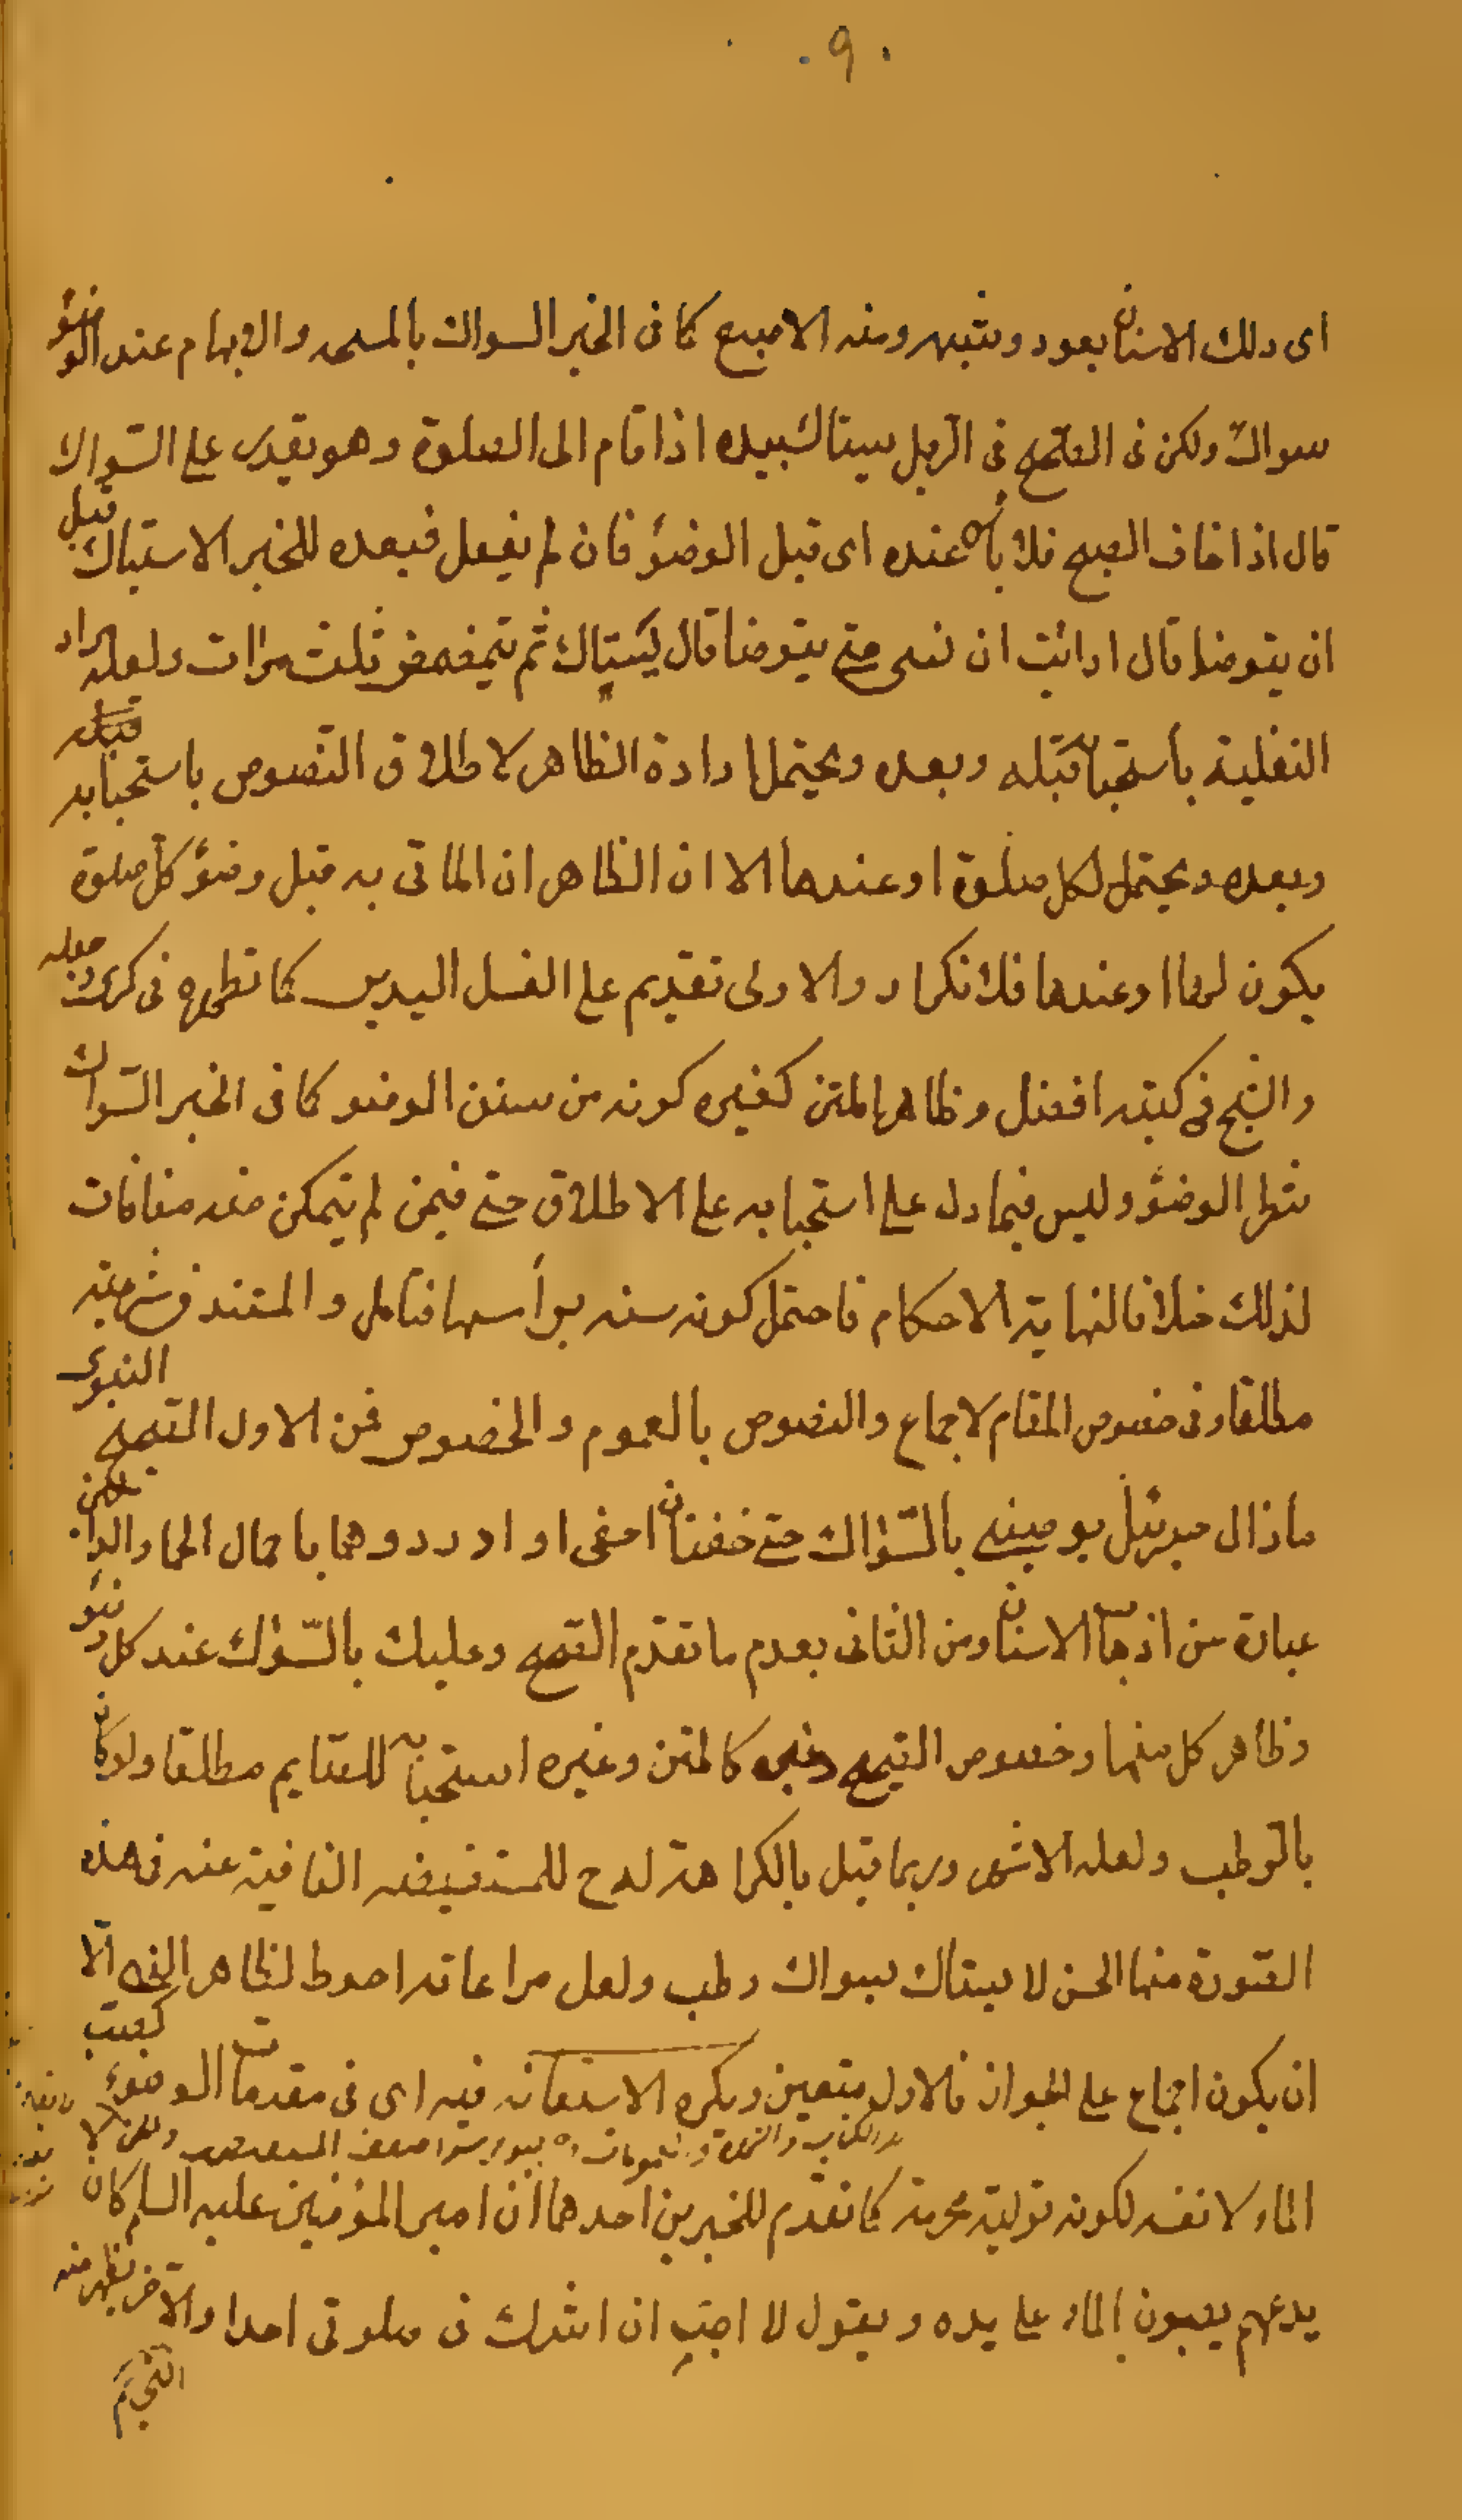 ٩
اى دلك الاسنان بعود وشبهه ومنه الاصبع كما فى الخبر السواك بالمسبحه والابهام عند الوضوء
سواك ولكن فى الصحيح فى الرجل يستاك بيده اذا قام الى الصلوة وهو يقدر على السواك
قال اذا خاف الصبح فلا باس عنده اى قبل الوضوء فان لم يفعل فبعده للخبر الاستياك قبل
ان يتوضا قال ارايت ان نسى حتى يتوضا قال يستاك ثم يتمضمض ثلث مرات ولعله مراد
النفلية باستحبابه قبله وبعده ويحتمل ارادة الظاهر لاطلاق النصوص باستحبابه قبله
وبعده ويحتمل لكل صلوة او عندها الا ان الظاهر ان الماتى به قبل وضوء كل صلوة
يكون لها او عندها فلا تكرار والاولى تقديم على الغسل اليدين كما فى
والشيخ فى كتبه افضل وظاهر المتن كغيره كونه من سنن الوضو كما فى الخبر السواك
شطر الوضوء وليس فيما دل على استحبابه على الاطلاق حتى فيمن لم يتمكن منه منافات
لذلك خلافا لنهاية الاحكام فاحتمل كونه سنه براسها فتامل والمستند فى شرعيته
مطلقا وفى خصوص المقام الاجماع والنصوص بالعموم والخصوص فمن الاول الصحيح النبوى
ما زال جبرئيل يوصينى بالسواك حتى خفت ان احفى او ادرد وهما باهمال الحاء والدالين
عبارة عن اذهاب الاسنان ومن الثانى بعدم ما تقدم الصحيح وعليك بالسواك عند كل وضوء
وظاهر كل منها وخصوص الصحيح وغيره كالمتن وغيره استحبابه للصايم مطلقا ولو كان
بالرطب ولعله الاشهر وربما قيل بالكراهة له ح للمستفيضه النافية عنه فى هذه
الصورة منها الحسن لا يستاك بسواك رطب ولعل مراعاته احوط لظاهر النهى الا
ان يكون اجماع على الجواز فالاول متعين ويكره الاستعانه فيه اى فى مقدمات الوضوء كصب
الماء لا نفسه لكونه تولية محرمة كما تقدم للخبرين احدهما ان امير المؤمنين عليه السلم كان
يدعهم يصبون الماء على يده ويقول لا احب ان اشرك فى صلوتى احدا والآخر